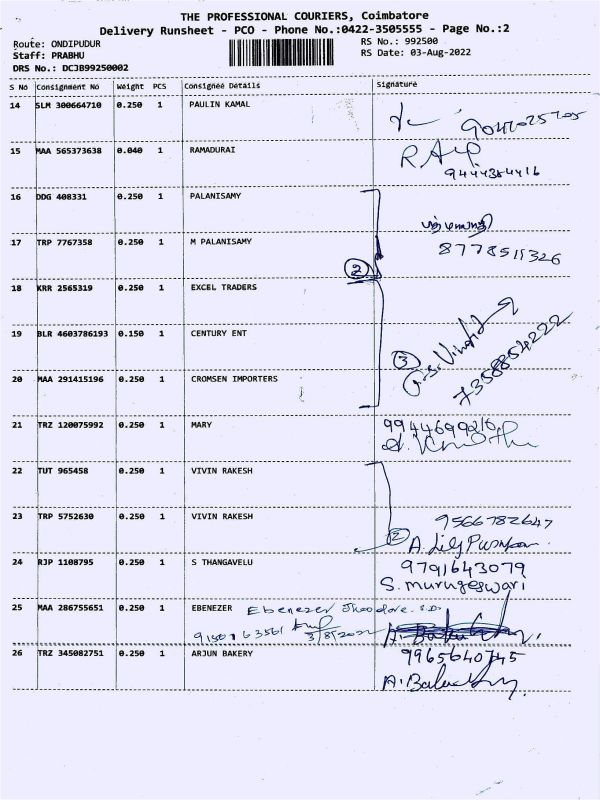 THE PROFESSIONAL COURIERS, Coimbatore
Delivery Runsheet - PCO - Phone No.:0422-3505555 - Page No.:2
Route: ONDIPUDUR RS No.: 992500
Staff: PRABHU RS Date: 03-Aug-2022
DRS No.: DCJB99250002
S No Consignment No Weight PCS Consignee Details Signature
14 SLM 300664710 0.250 1 PAULIN KAMAL
15 MAA 565373638 0.040 1 RAMADURAI
9444384416
16 DDG 408331 0.250 1 PALANISAMY
17 TRP 7767358 0.250 1 M PALANISAMY
8778511326
2
18 KRR 2565319 0.250 1 EXCEL TRADERS
19 BLR 4603786193 0.150 1 CENTURY ENT
3
7358854222
20 MAA 291415196 0.250 1 CROMSEN IMPORTERS
21 TRZ 120075992 0.250 1 MARY
9944699216
22 TUT 965458 0.250 1 VIVIN RAKESH
23 TRP 5752630 0.250 1 VIVIN RAKESH
9566782647
2
24 RJP 1108795 0.250 1 S THANGAVELU
9791643079
S. Murugeswari
25 MAA 286755651 0.250 1 EBENEZER Ebenezer Theodore. S.D.
3/8/2022
26 TRZ 345082751 0.250 1 ARJUN BAKERY
9965640745